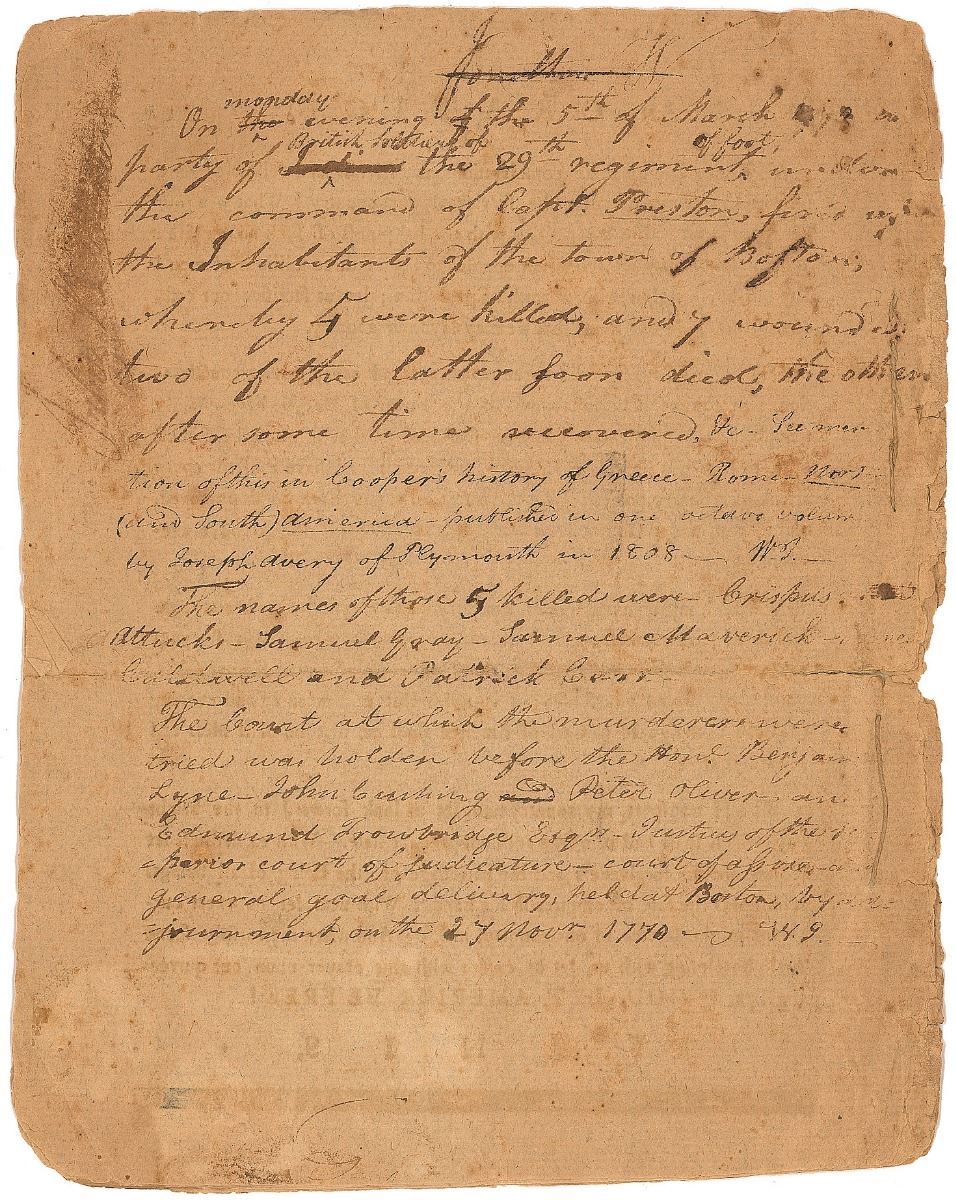 Jonathan W
monday
On the evening of the 5th of March
British Soldiers of of foot,
party of the 29th regiment, under
the command of Capt. Preston, fir'd
the Inhabitants of the town of Boston,
whereby 5 were killed, and 7 wounded
two of the latter soon died, the others
after some time recovered, &c - See men
tion of this in Cooper's history of Greece - Rome - North
(and South) America - published in one octavo volum
by Joseph Avery of Plymouth in 1808 — W.S. —
The names of those 5 killed were - Crispus
Attucks - Samuel Gray - Samuel Maverick -
Caldwell and Patrick Carr -
The Court at which the murderers were
tried was holden before the Honl. Benjam
Lyne - John Cushing and Peter Oliver - an
Edmund Trowbridge Esqrs - Justices of the
-perior court of judicature - court of assize, a
general goal delivery, held at Boston, by ad-
-journment, on the 27 Novr. 1770 — W.S. —
AMERICA BE FREE!